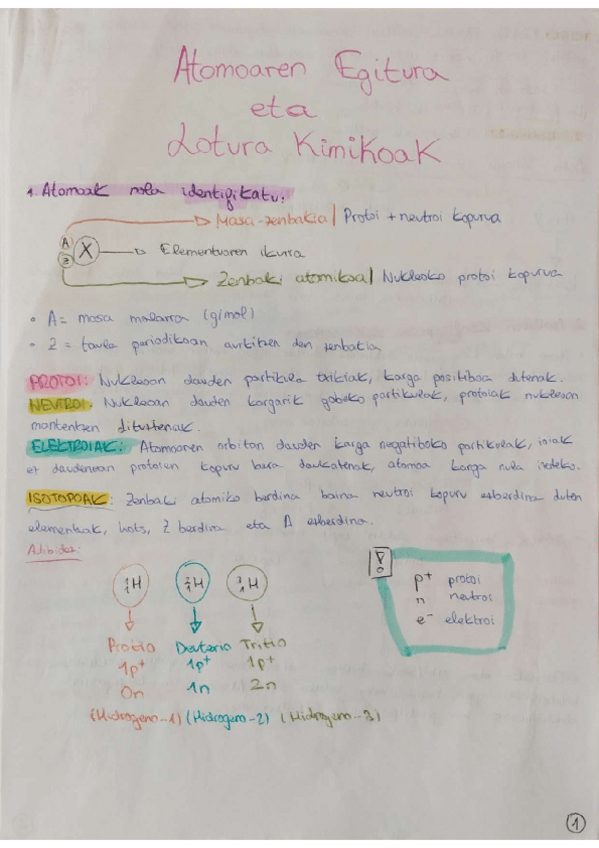 Atomoaren Egitura
eta
Lotura Kimikoak
1. Atomoak nola identifikatu:
Masa-zenbakia | Protoi + neutroi kopurua
A
Z
X
Elementuaren ikurra
Zenbaki atomikoa | Nukleoko protoi kopurua
• A = masa molarra (g/mol)
• Z = taula periodikoan aurkitzen den zenbakia
PROTOI: Nukleoan dauden partikula txikiak, karga positiboa dutenak.
NEUTROI: Nukleoan dauden kargarik gabeko partikulak, protoiak nukleoan
mantentzen dituztenak.
ELEKTROIAK: Atomoaren orbitan dauden karga negatiboko partikulak, ioiak
ez daudenean protoien kopuru bera daukatenak, atomoa karga nula izateko.
ISOTOPOAK: Zenbaki atomiko berdina baina neutroi kopuru ezberdina duten
elementuak, hots, Z berdina eta A ezberdina.
Adibidez:
¹₁H ²₁H ³₁H
Protio Deuterio Tritio
1p⁺ 1p⁺ 1p⁺
0n 1n 2n
(Hidrogeno-1) (Hidrogeno-2) (Hidrogeno-3)
!
p⁺ protoi
n neutroi
e⁻ elektroi
1